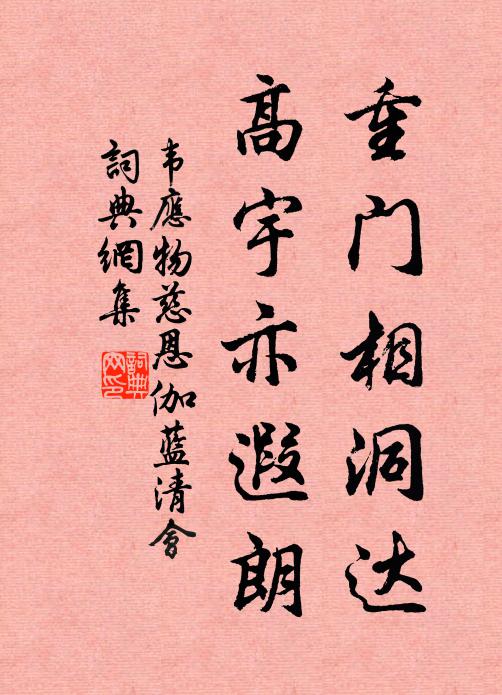 重门相洞达
高宇亦遐朗
韦應物慈恩伽藍清會
詞典網集
詞典网印